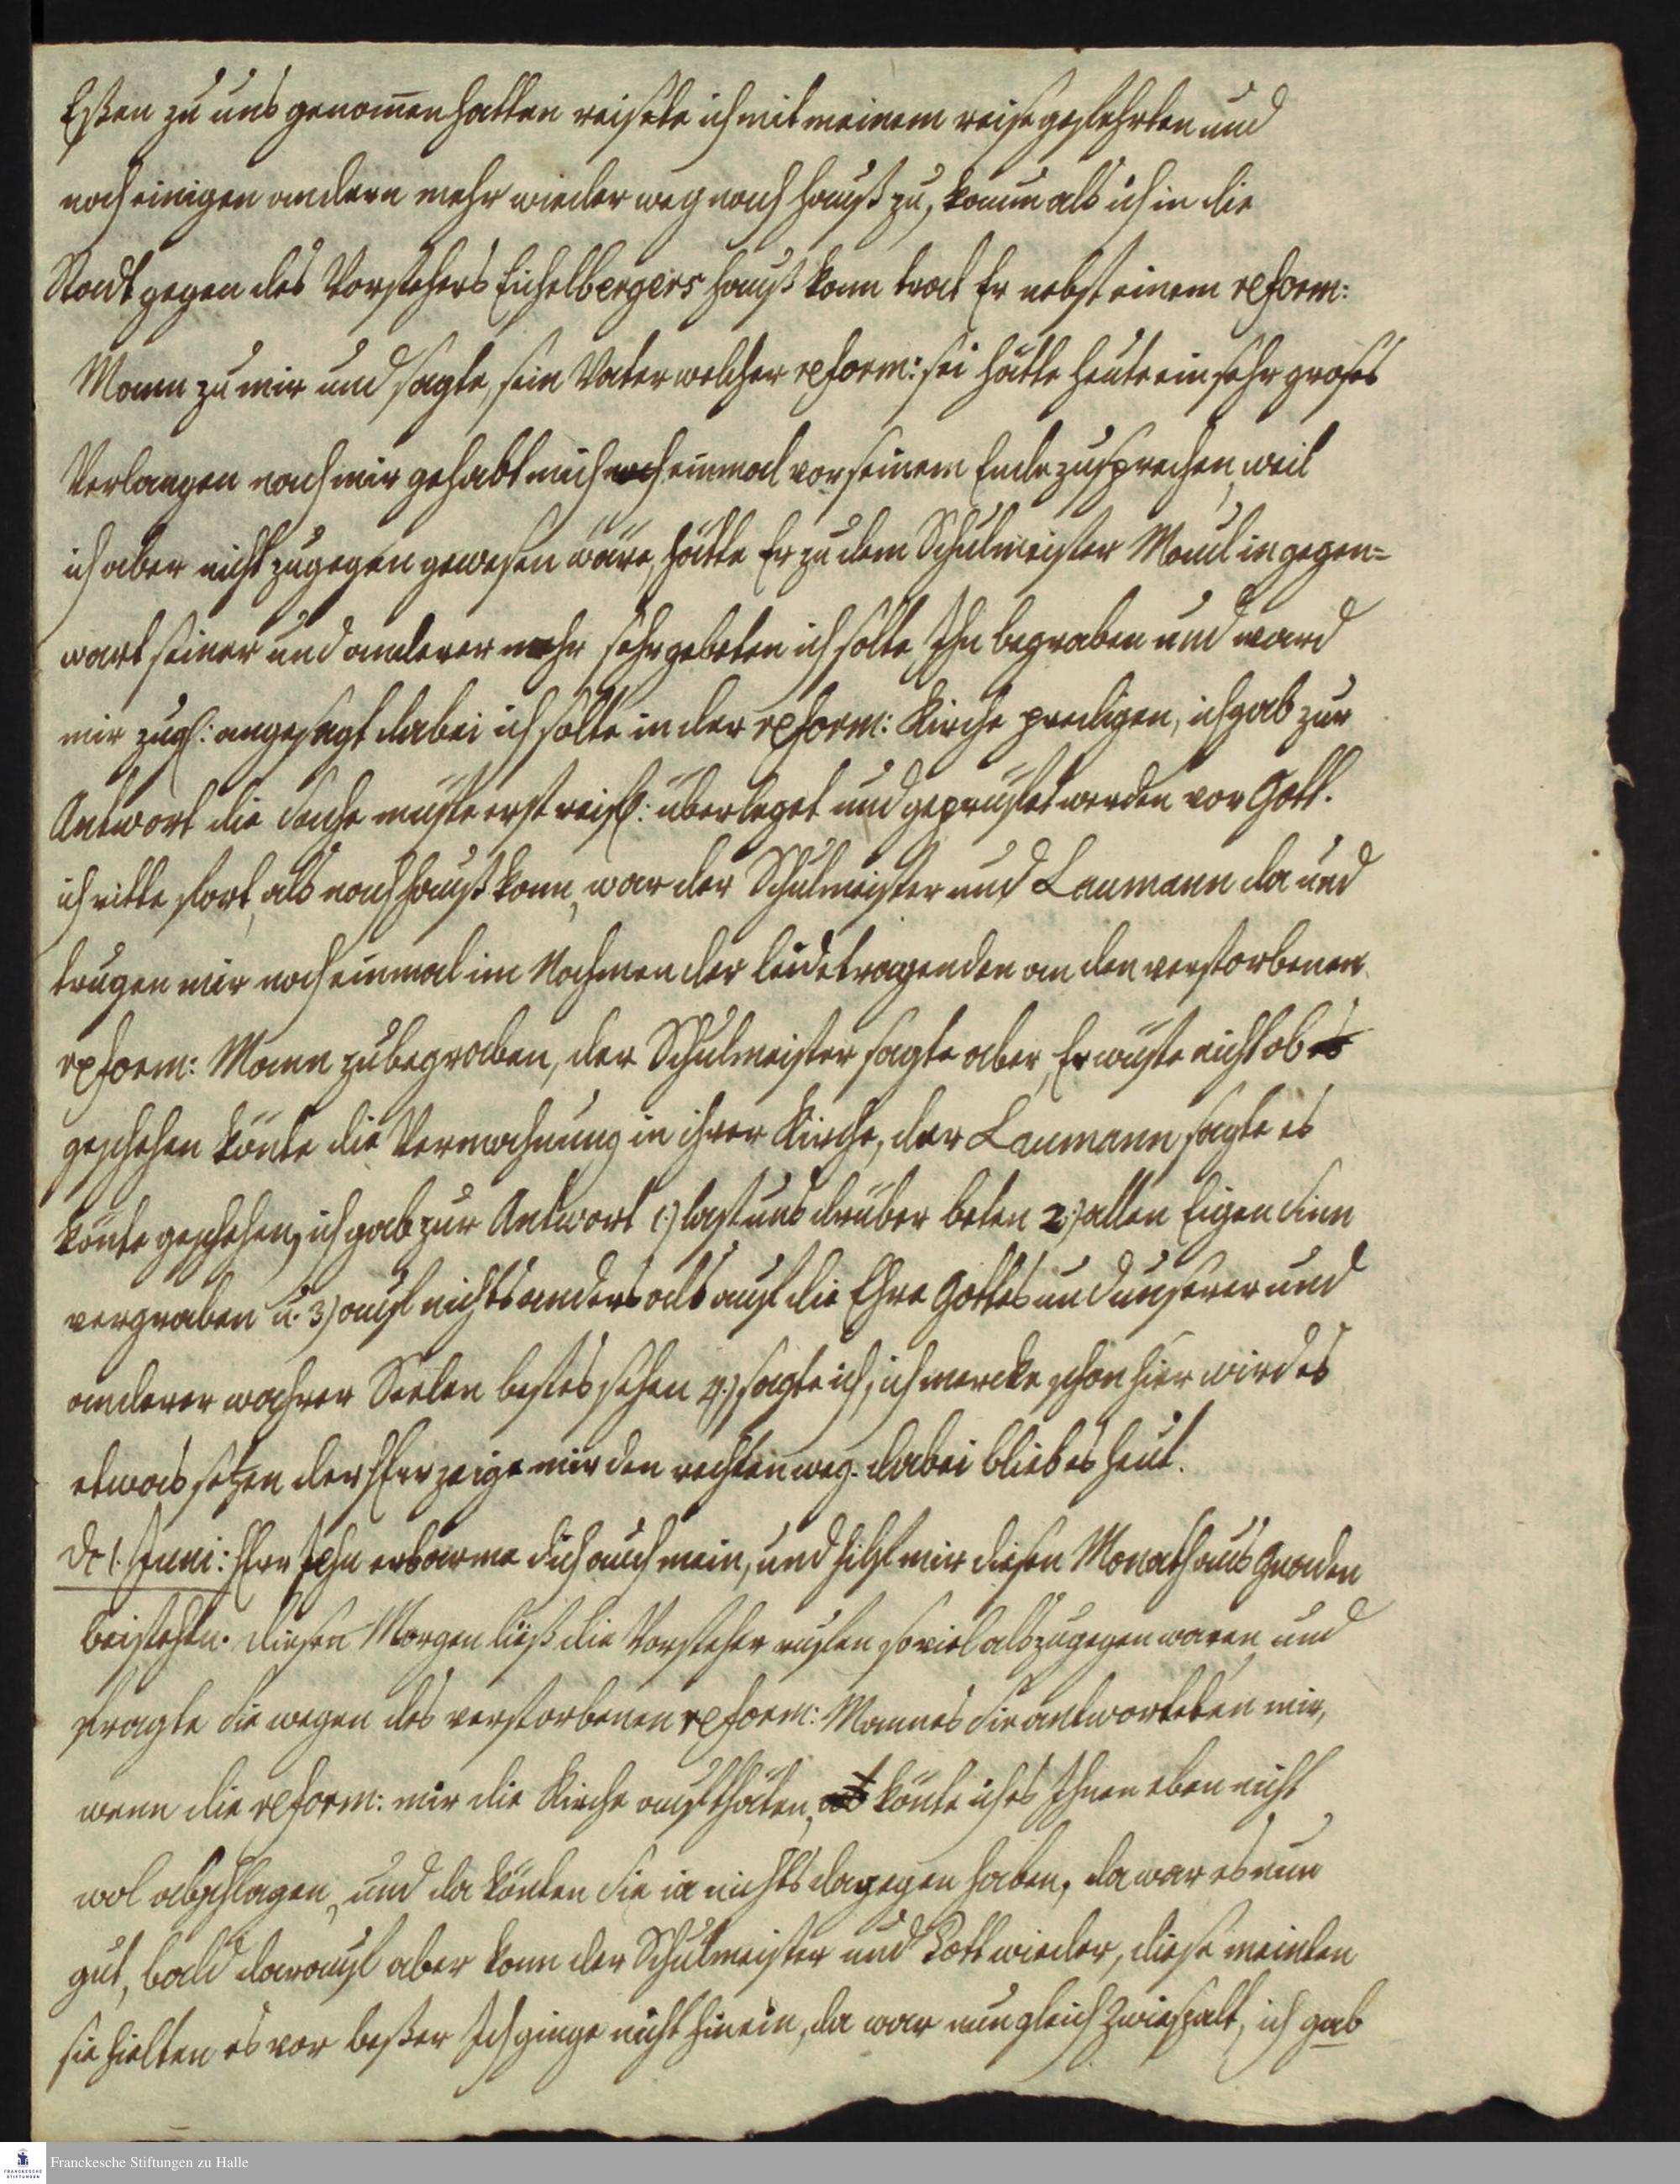 Eßen zu uns genom̅en hatten reisete ich mit meinem reise gefehrten und
noch einigen andern mehr wieder weg nach Hauß zu, kaum als ich in die
Stadt gegen des Vorstehers Eichelbergers Hauß kam trat Er nebst einem reform:
Mann zu mir und sagte, sein Vater welcher reform: sei hätte heute ein sehr groses
Verlangen nach mir gehabt mich noch einmal vor seinem Ende zu sprechen, weil
ich aber nicht zugegen gewesen wäre, hätte Er zu dem Schulmeister Maul in gegen=
wart seiner und anderer mehr sehr gebeten ich solte Ihn begraben und ward
mir zugl: angesagt dabei ich solte in der reform: Kirche predigen, ich gab zur
Antwort die Sache müste erst reifl: überleget und geprüfet werden vor Gott.
ich ritte fort, als nach Hauß kam, war der Schulmeister und Laumann da und
trugen mir noch einmal im Nahmen der leidetragenden an den verstorbenen
reform: Mann zu begraben, der Schulmeister sagte aber, Er wüste nicht ob es
geschehen könte die Vermahnung in ihrer Kirche, der Laumann sagte es
könte geschehen, ich gab zur Antwort 1.) last uns drüber beten 2.) allen Eigen Sinn
vergraben u. 3) auf nichts anders als auf die Ehre Gottes und unserer und
anderer wahrer Seelen bestes sehen 4.) sagte ich, ich mercke schon hier wird es
etwas setzen der HErr zeige mir den rechten weg. dabei blieb es heut.
D 1. Juni: HErr JEsu erbarme dich auch mein, und hilf mir diesen Monath aus Gnaden
beistehen. diesen Morgen ließ die Vorsteher rufen so viel als zugegen waren und
fragte Sie wegen des verstorbenen reform: Mannes Sie antworteten mir,
wenn die reform: mir die Kirche aufthäten, könte ich es Ihnen eben nicht
wol abschlagen, und da könten Sie ia nichts dagegen haben, da war es nun
gut, bald darauf aber kam der Schulmeister und Lott wieder, diese meinten
sie hielten es vor beßer Ich ginge nicht hinein, da war nun gleich Zwiespalt, ich gab
Franckesche Stiftungen zu Halle